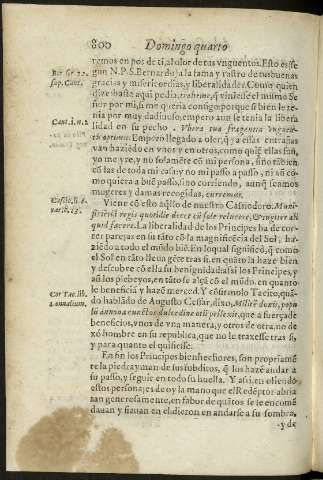 800 Domingo quarto
remos en pos de ti, al olor de tus vnguentos. Esto es se
gun N.P.S. Bernardo) a la fama y rastro de tus buenas
gracias y misericordias, y liberalidades. Como quien
dize: basta aqui pedia, traheme, q̃ viniesse el mismo Se
ñor por mi, y me queria consigo: porque si bien le te-
nia por muy dadiuoso, empero aun se tenia la liberal
idad en su pecho. Vbera tua fragrantia vnguẽt
is optimis. Empero llegado a oler, q̃ ya essas entrañas
van haziẽdo en vnos y en otros, como quiẽ ellas suã,
yo me yre, y no solamẽte cõ mi persona, sino tãbien
cõ las de toda mi casa: y no mi passo a passo, ni aũ có-
mo quiera a buẽ passo, sino corriendo, aunq̃ seamos
mugeres y damas recogidas, curremus.
Viene cõ esto aq̃llo de nuestro Casiodoro. Muni-
ficentia regis quotidie decet cũ sole relucere, & iugiter ali
quid facere. La liberalidad de los Principes ha de cor-
rer parejas en su tãto cõ la magnificẽcia del Sol, ha-
ziẽdo a todo el mũdo biẽ. En lo qual significó, q̃ como
el Sol en tãto lleua gẽte tras si, en quãto la haze bien
y descubre cõ ella su benignidad: assi los Principes, y
aũ los plebeyos, en tãto se alçã cõ el mũdo, en quanto
le beneficiã y hazẽ merced. Y cõfirmólo Tacito, quã-
do hablãdo de Augusto Cesar, dixo, Militẽ donis, popu
lũ annona cunctos dulcedine otij pellexit, que a fuerça de
beneficios, vnos de vna manera, y otros de otra, no de
xó hombre en su republica, que no le traxesse tras si,
y para quanto el quisiesse.
En fin los Principes bienhechores, son propriamẽ
te la piedra yman de sus subditos, q̃ los hazẽ andar a
su passo, y seguir en todo su huella. Y assi, en oliendo
estos personajes de oy la mano que el Redẽptor abria
tan generosamente, en fabor de quãtos se le encomẽ
dauan y fiauan en el, dieron en andarse a su sombra,
y de
Cant. 1. n. 2